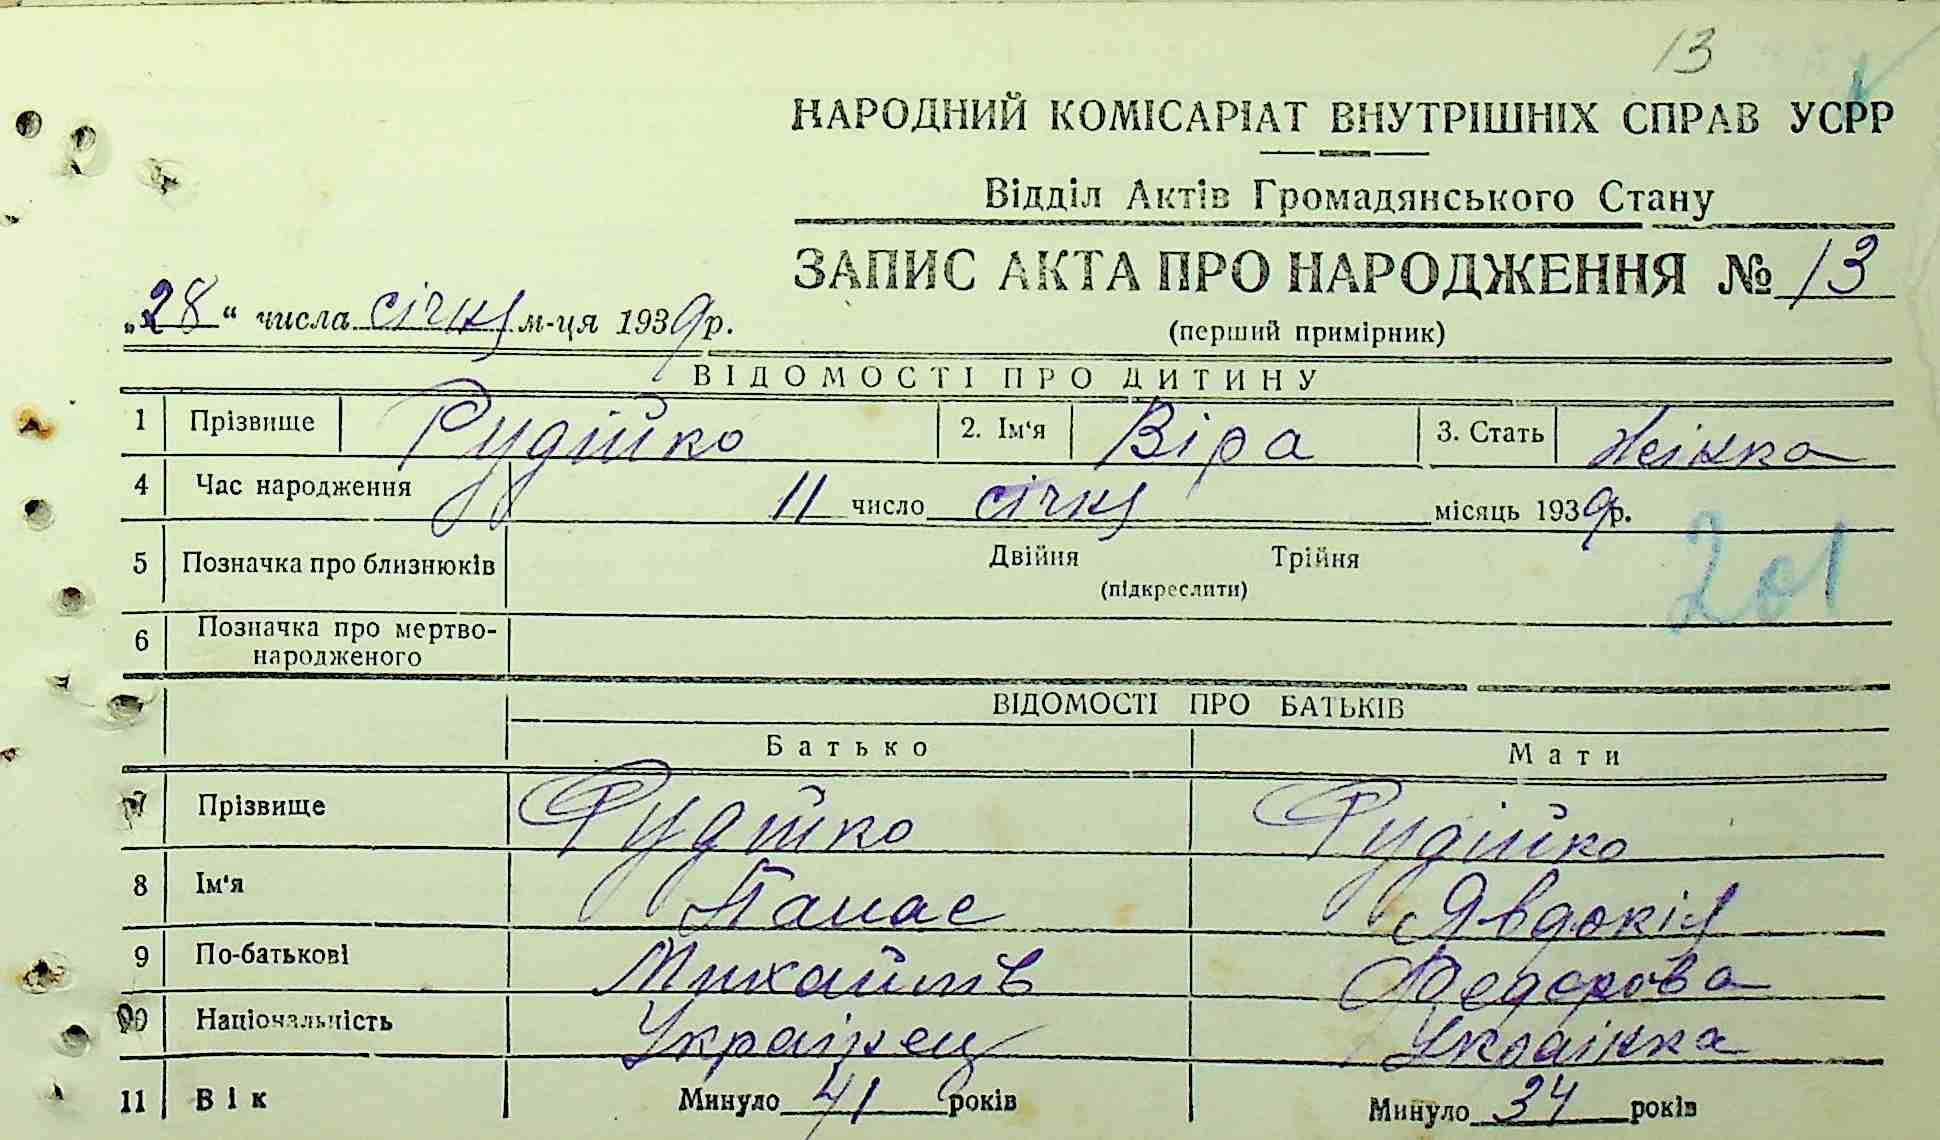 13
НАРОДНИЙ КОМІСАРІАТ ВНУТРІШНІХ СПРАВ УСРР
Відділ Актів Громадянського Стану
ЗАПИС АКТА ПРО НАРОДЖЕННЯ № 13
„28“ числа січня м-ця 1939 р.
(перший примірник)
ВІДОМОСТІ ПРО ДИТИНУ
1 Прізвище Рудійко 2. Ім‘я Віра 3. Стать Жінка
4 Час народження 11 число січня місяць 1939 р.
5 Позначка про близнюків Двійня Трійня
(підкреслити)
201
6 Позначка про мертво-
народженого
ВІДОМОСТІ ПРО БАТЬКІВ
Батько Мати
7 Прізвище Рудійко Рудійко
8 Ім‘я Панас Явдокія
9 По-батькові Михайлів Федорова
10 Національність Українец Українка
11 Вік Минуло 41 років Минуло 34 років